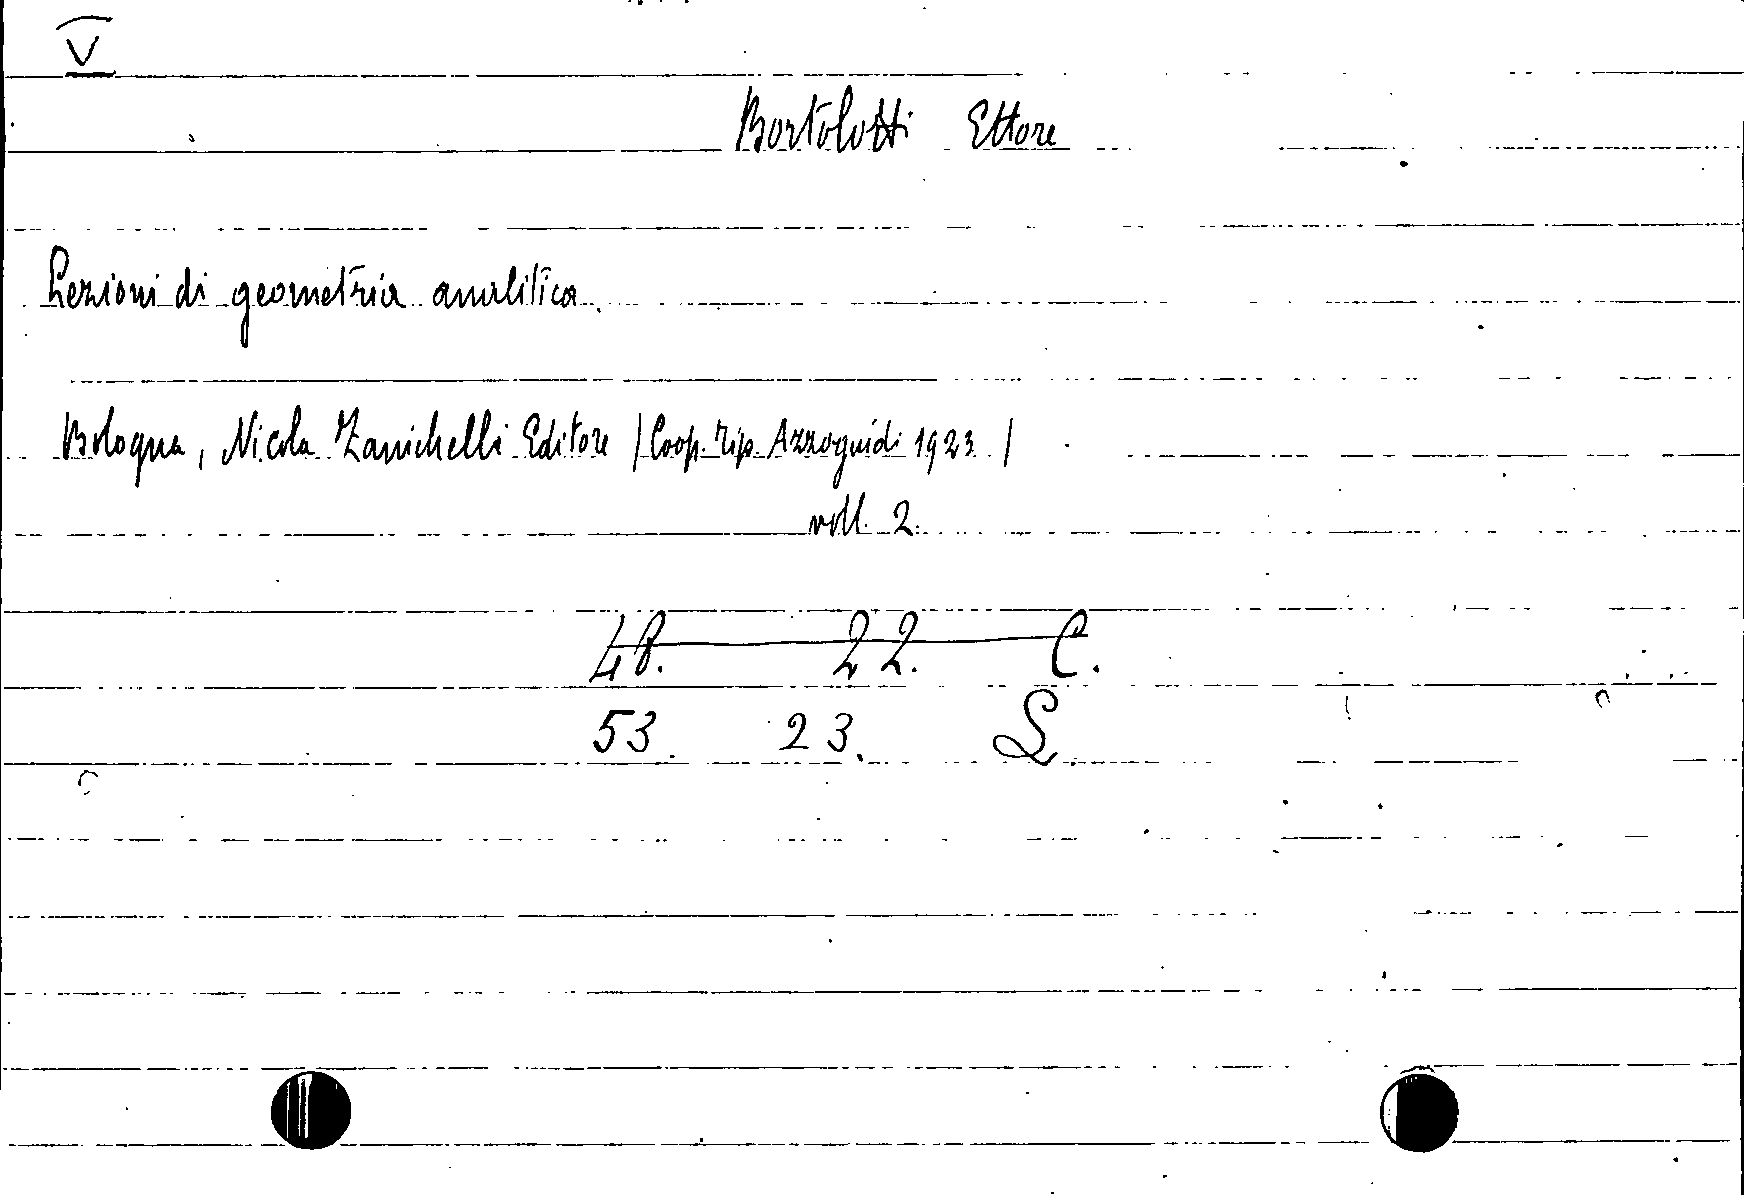 V
Bortolotti Ettore
Lezioni di geometria analitica.
Bologna, Nicola Zanichelli Editore /Coop. Tip. Azzoguidi 1923 /
voll. 2.
48. 22. C.
53. 23. L.